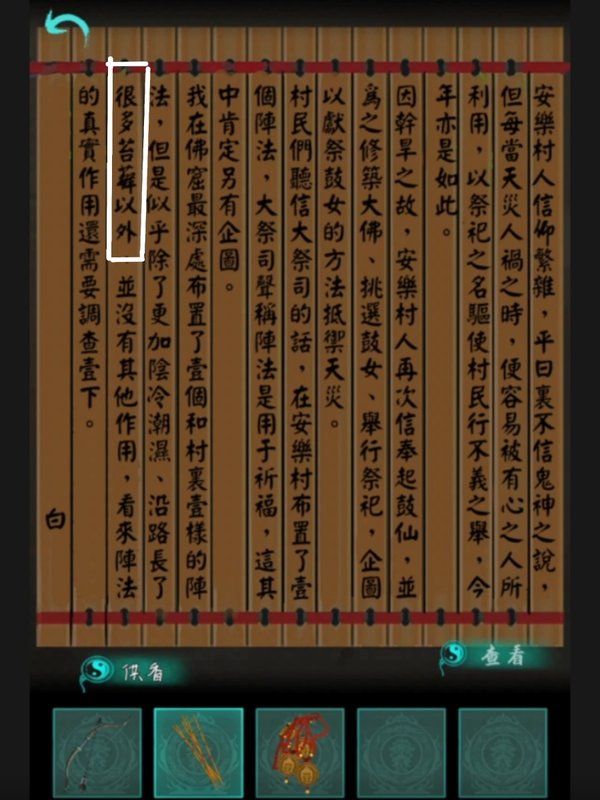 安樂村人信仰繁雜，平日裏不信鬼神之說，
但每當天災人禍之時，便容易被有心之人所
利用，以祭祀之名驅使村民行不義之舉，今
年亦是如此。
因幹旱之故，安樂村人再次信奉起鼓仙，並
爲之修築大佛、挑選鼓女、舉行祭祀，企圖
以獻祭鼓女的方法抵禦天災。
村民們聽信大祭司的話，在安樂村布置了壹
個陣法，大祭司聲稱陣法是用于祈福，這其
中肯定另有企圖。
我在佛窟最深處布置了壹個和村裏壹樣的陣
法，但是似乎除了更加陰冷潮濕、沿路長了
很多苔蘚以外，並沒有其他作用，看來陣法
的真實作用還需要調查壹下。
白
供香
查看